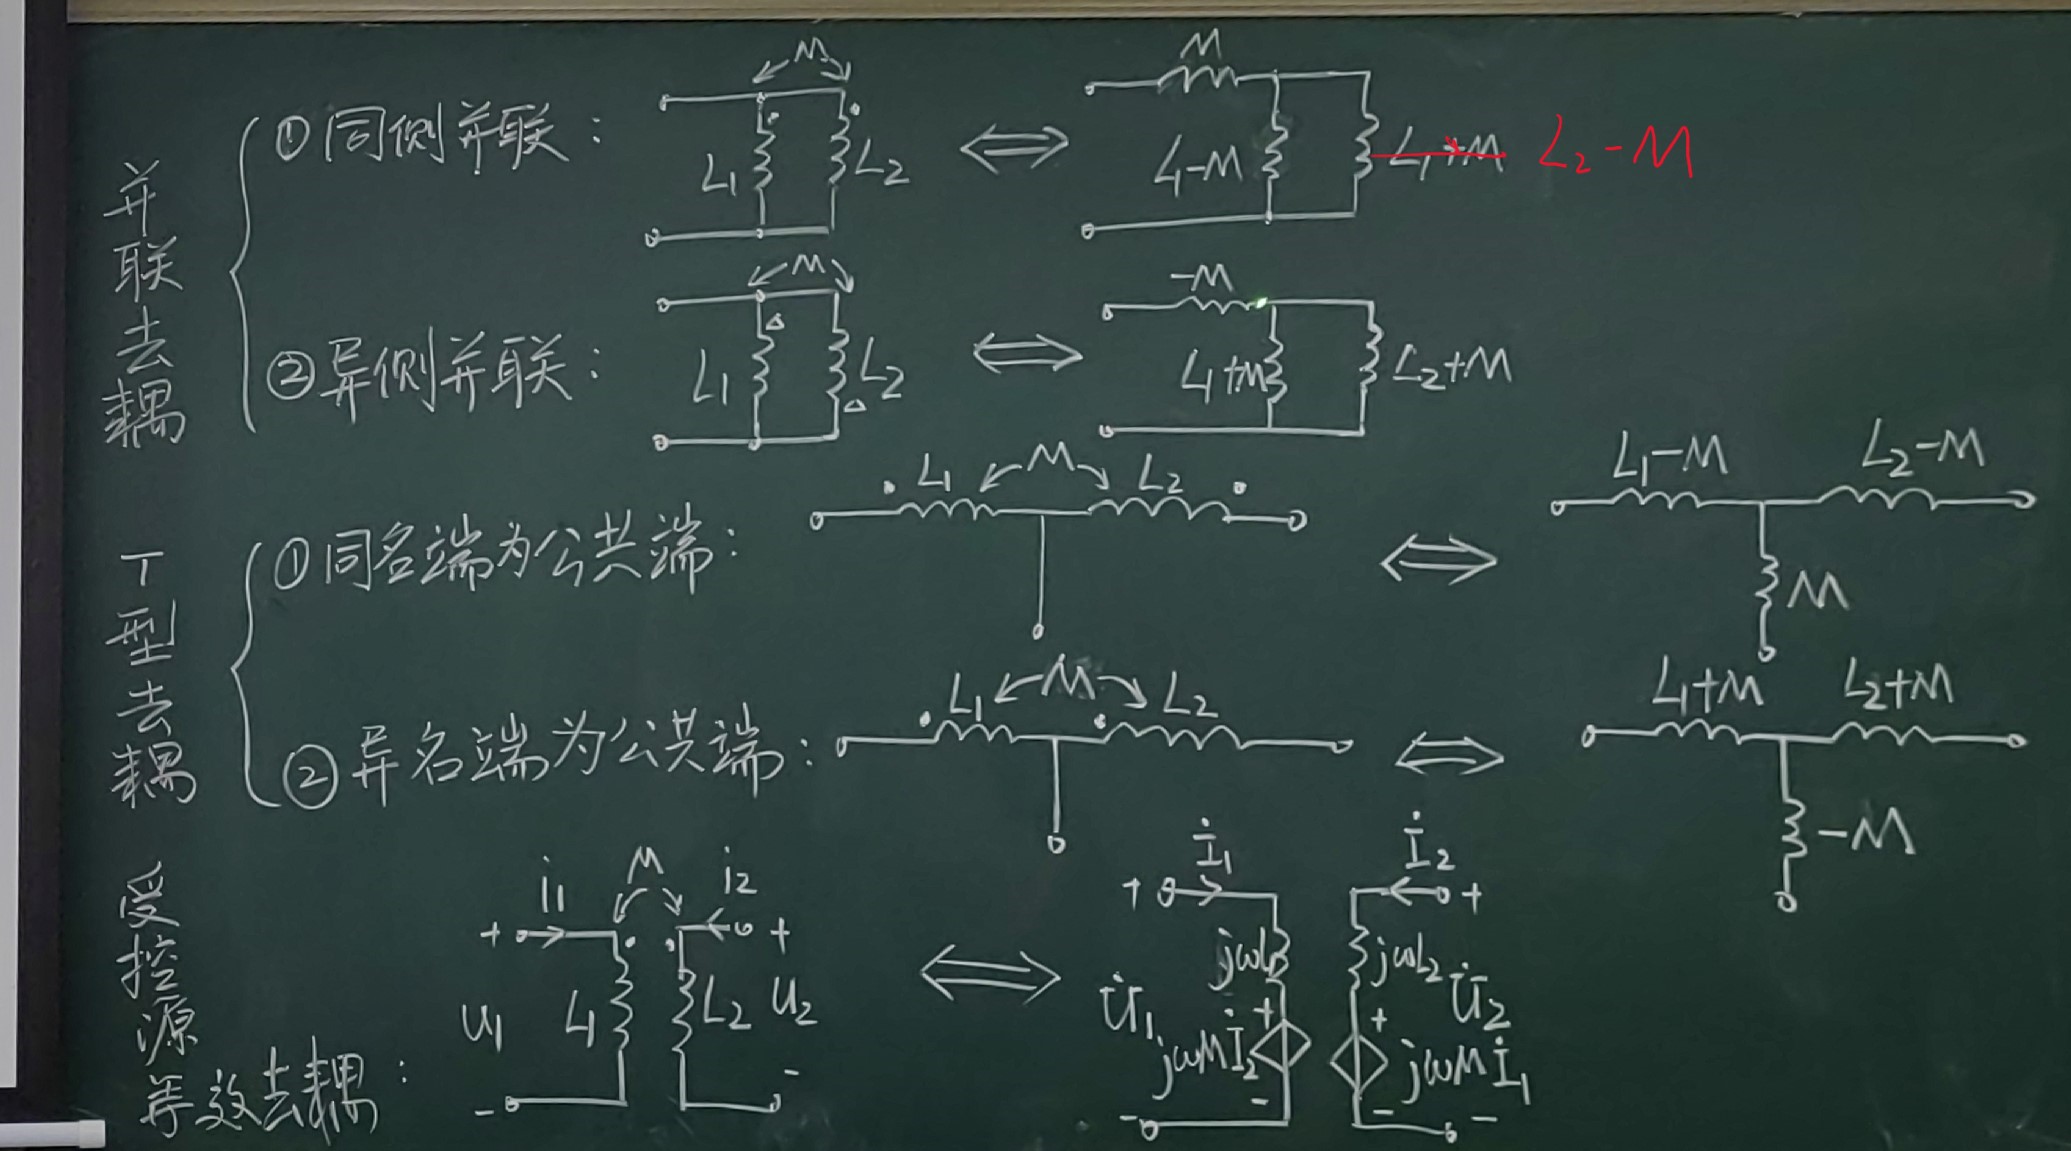 并联去耦
①同侧并联：
M
L₁
L₂
M
L₁-M
L₁+M
L₂-M
②异侧并联：
M
L₁
L₂
-M
L₁+M
L₂+M
T型去耦
①同名端为公共端：
L₁
M
L₂
L₁-M
L₂-M
M
②异名端为公共端：
L₁
M
L₂
L₁+M
L₂+M
-M
受控源等效去耦：
i₁
M
i₂
+
+
u₁
L₁
L₂
u₂
-
-
İ₁
İ₂
+
+
jωL₁
jωL₂
U̇₁
U̇₂
+
+
jωMİ₂
jωMİ₁
-
-
-
-